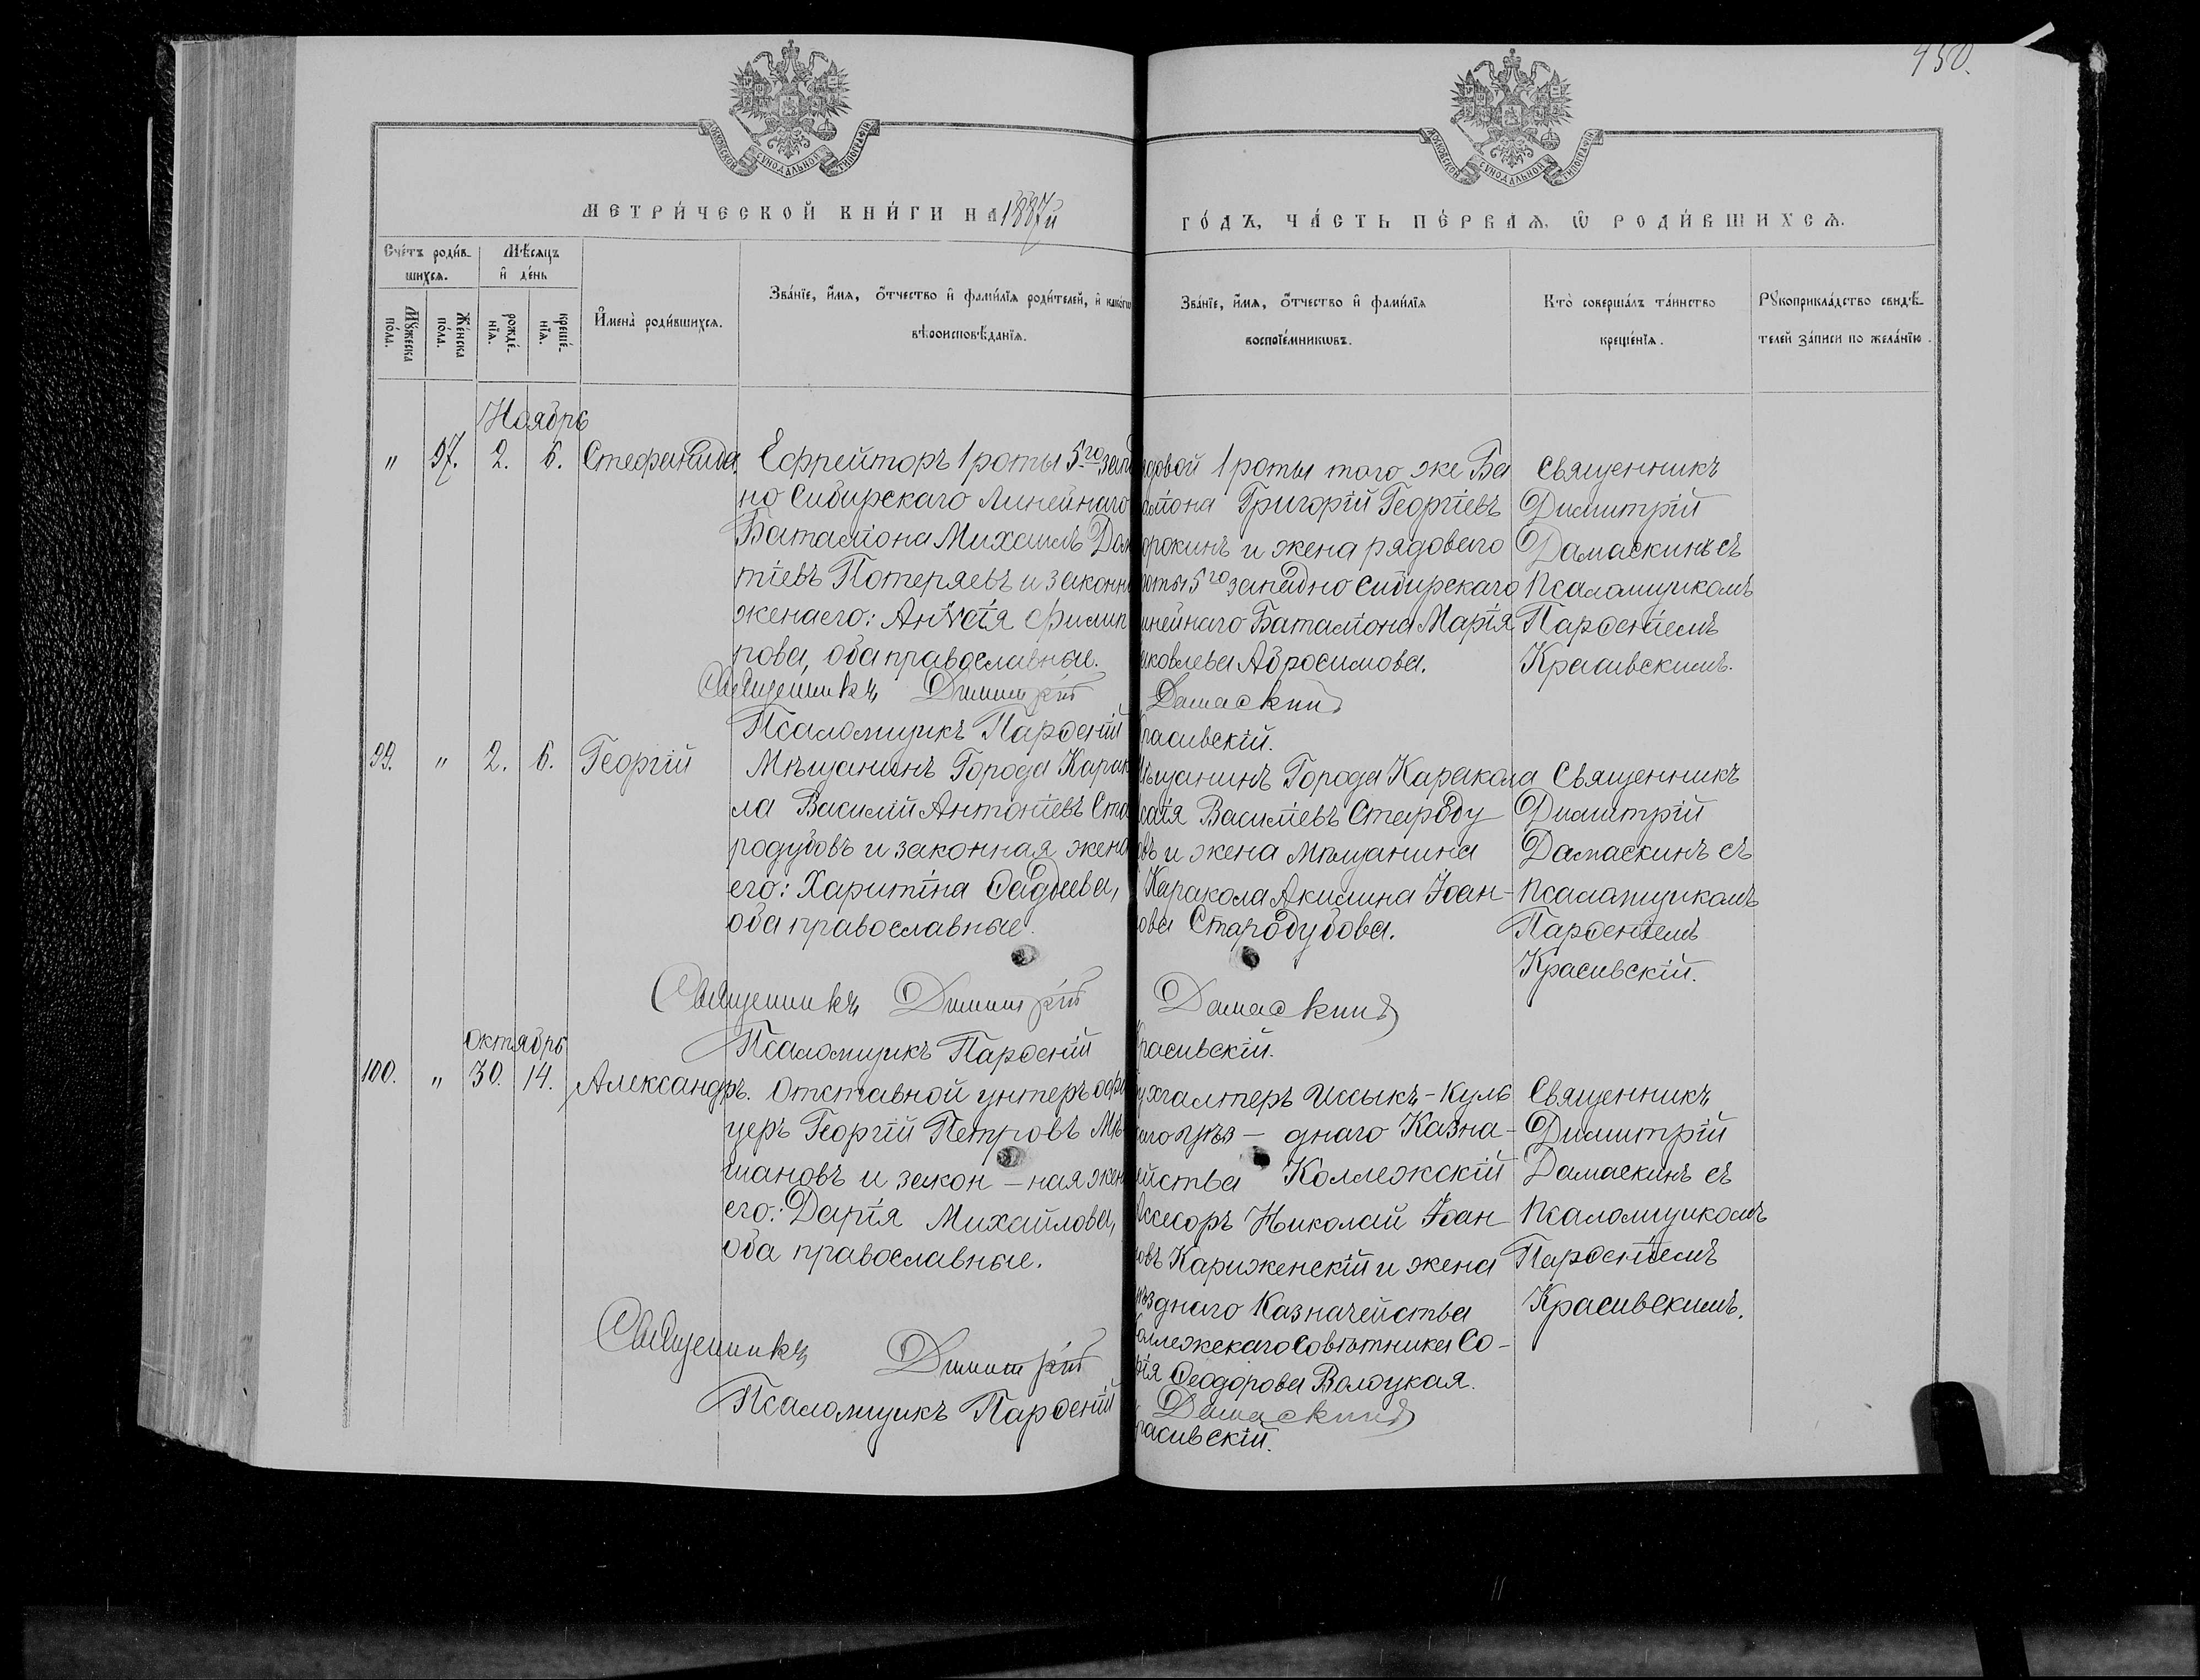 450.
МОСКОВСКОЙ СѴНОДАЛЬНОЙ ТИПОГРАФІИ
МОСКОВСКОЙ СѴНОДАЛЬНОЙ ТИПОГРАФІИ
МЕТРИ́ЧЕСКОЙ КНИ́ГИ НА 1887й
ГО́ДЪ, ЧА́СТЬ ПЕ́РВАѦ, Ѡ҆ РОДИ́ВШИХСѦ.
Сче́тъ роди́в-
шихсѧ.
Мꙋ́жеска по́ла.
Же́нска по́ла.
Мѣ́сѧцъ
и҆ де́нь
рожде́-
нїѧ.
креще́-
нїѧ.
И҆мена̀ роди́вшихсѧ.
Зва́нїе, и҆́мѧ, ѻ҆́тчество и҆ фами́лїѧ роди́телей, и҆ како́гѡ
вѣроисповѣ́данїѧ.
Зва́нїе, и҆́мѧ, ѻ҆́тчество и҆ фами́лїѧ
воспрїе́мникѡвъ.
Кто̀ соверша́лъ та́инство
креще́нїѧ.
Рꙋкоприкла́дство свидѣ́-
телей за́писи по жела́нїю.
Ноябрь
" 97. 2. 6. Стефанида.
Ефрейторъ 1 роты 5го запад
но Сибирскаго Линейнаго
Баталіона Михаилъ Дом
тіевъ Потеряевъ и законна
жена его: Анѵсія Филип
пова, оба православные.
ядовой 1 роты того же Ба
аліона Григорій Георгіевъ
орокинъ и жена рядоваго
роты 5го западно Сибирскаго
инейнаго Баталіона Марія
аковлева Абросимова.
Священникъ
Димитрій
Дамаскинъ съ
Псаломщикомъ
Парѳеніемъ
Красивскимъ.
Священникъ Димитрій Дамаскинъ
Псаломщикъ Парѳеній Красивскій.
99. " 2. 6. Георгій
Мѣщанинъ Города Карак
ла Василій Антоніевъ Ста
родубовъ и законная жена
его: Харитіна Ѳадѣева,
оба православные.
Мѣщанинъ Города Каракола
саія Василіевъ Староду
овъ и жена мѣщанина
Каракола Акилина Іоан-
ова Стародубова.
Священникъ
Димитрій
Дамаскинъ съ
Псаломщикомъ
Парѳеніемъ
Красивскій.
Священникъ Димитрій Дамаскинъ
Псаломщикъ Парѳеній Красивскій.
Октябрь
100. " 30. 14. Александръ.
Отставной унтеръ офи
церъ Георгій Петровъ Мѣ-
шановъ и закон-ная жена
его: Дарія Михайлова,
оба православные.
ухгалтеръ Иссыкъ-Куль
каго уѣз- днаго Казна-
ейства Коллежскій
Ассесоръ Николай Іоан
овъ Кариженскій и жена
уѣзднаго Казначейства
оллежскаго Совѣтника Со-
фія Ѳеодорова Волоцкая.
Священникъ
Димитрій
Дамаскинъ съ
Псаломщикомъ
Парѳеніемъ
Красивскимъ.
Священникъ Димитрій Дамаскинъ
Псаломщикъ Парѳеній Красивскій.